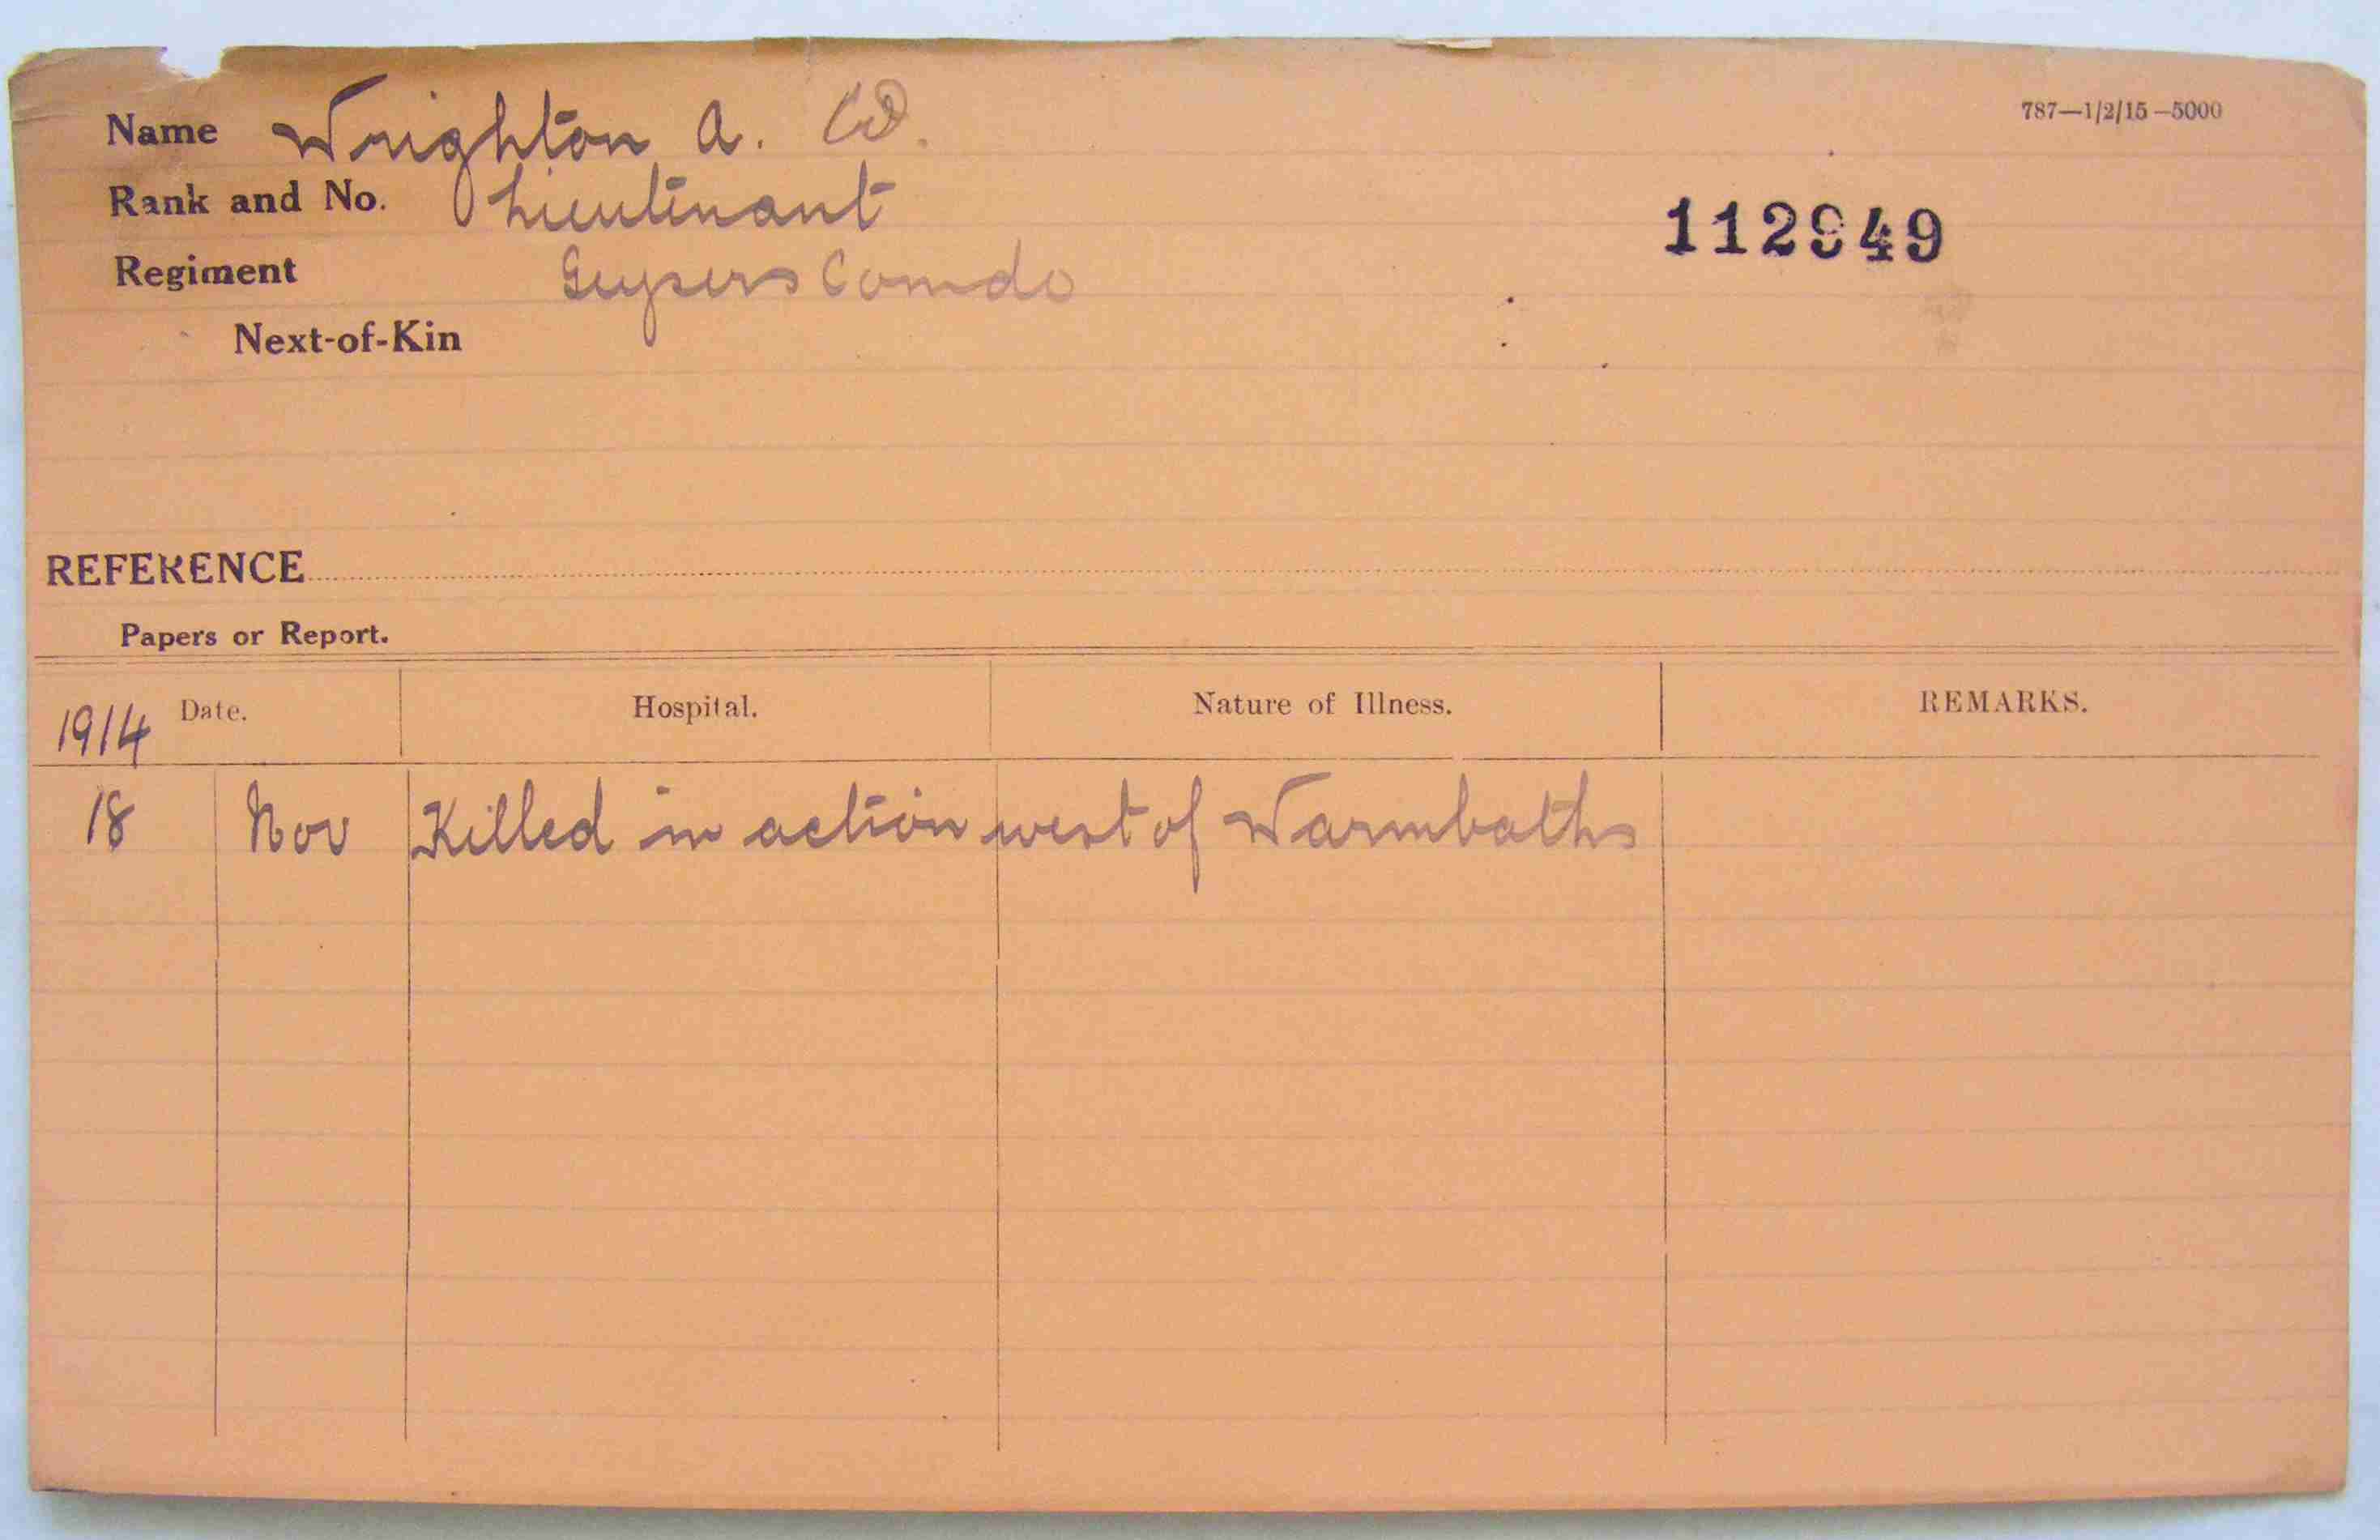 787—1/2/15—5000
Name Wrighton A. W.
Rank and No. Lieutenant
112949
Regiment Geysers Comdo
Next-of-Kin
REFERENCE
Papers or Report.
1914 Date. Hospital. Nature of Illness. REMARKS.
18 Nov Killed in action west of Warmbaths